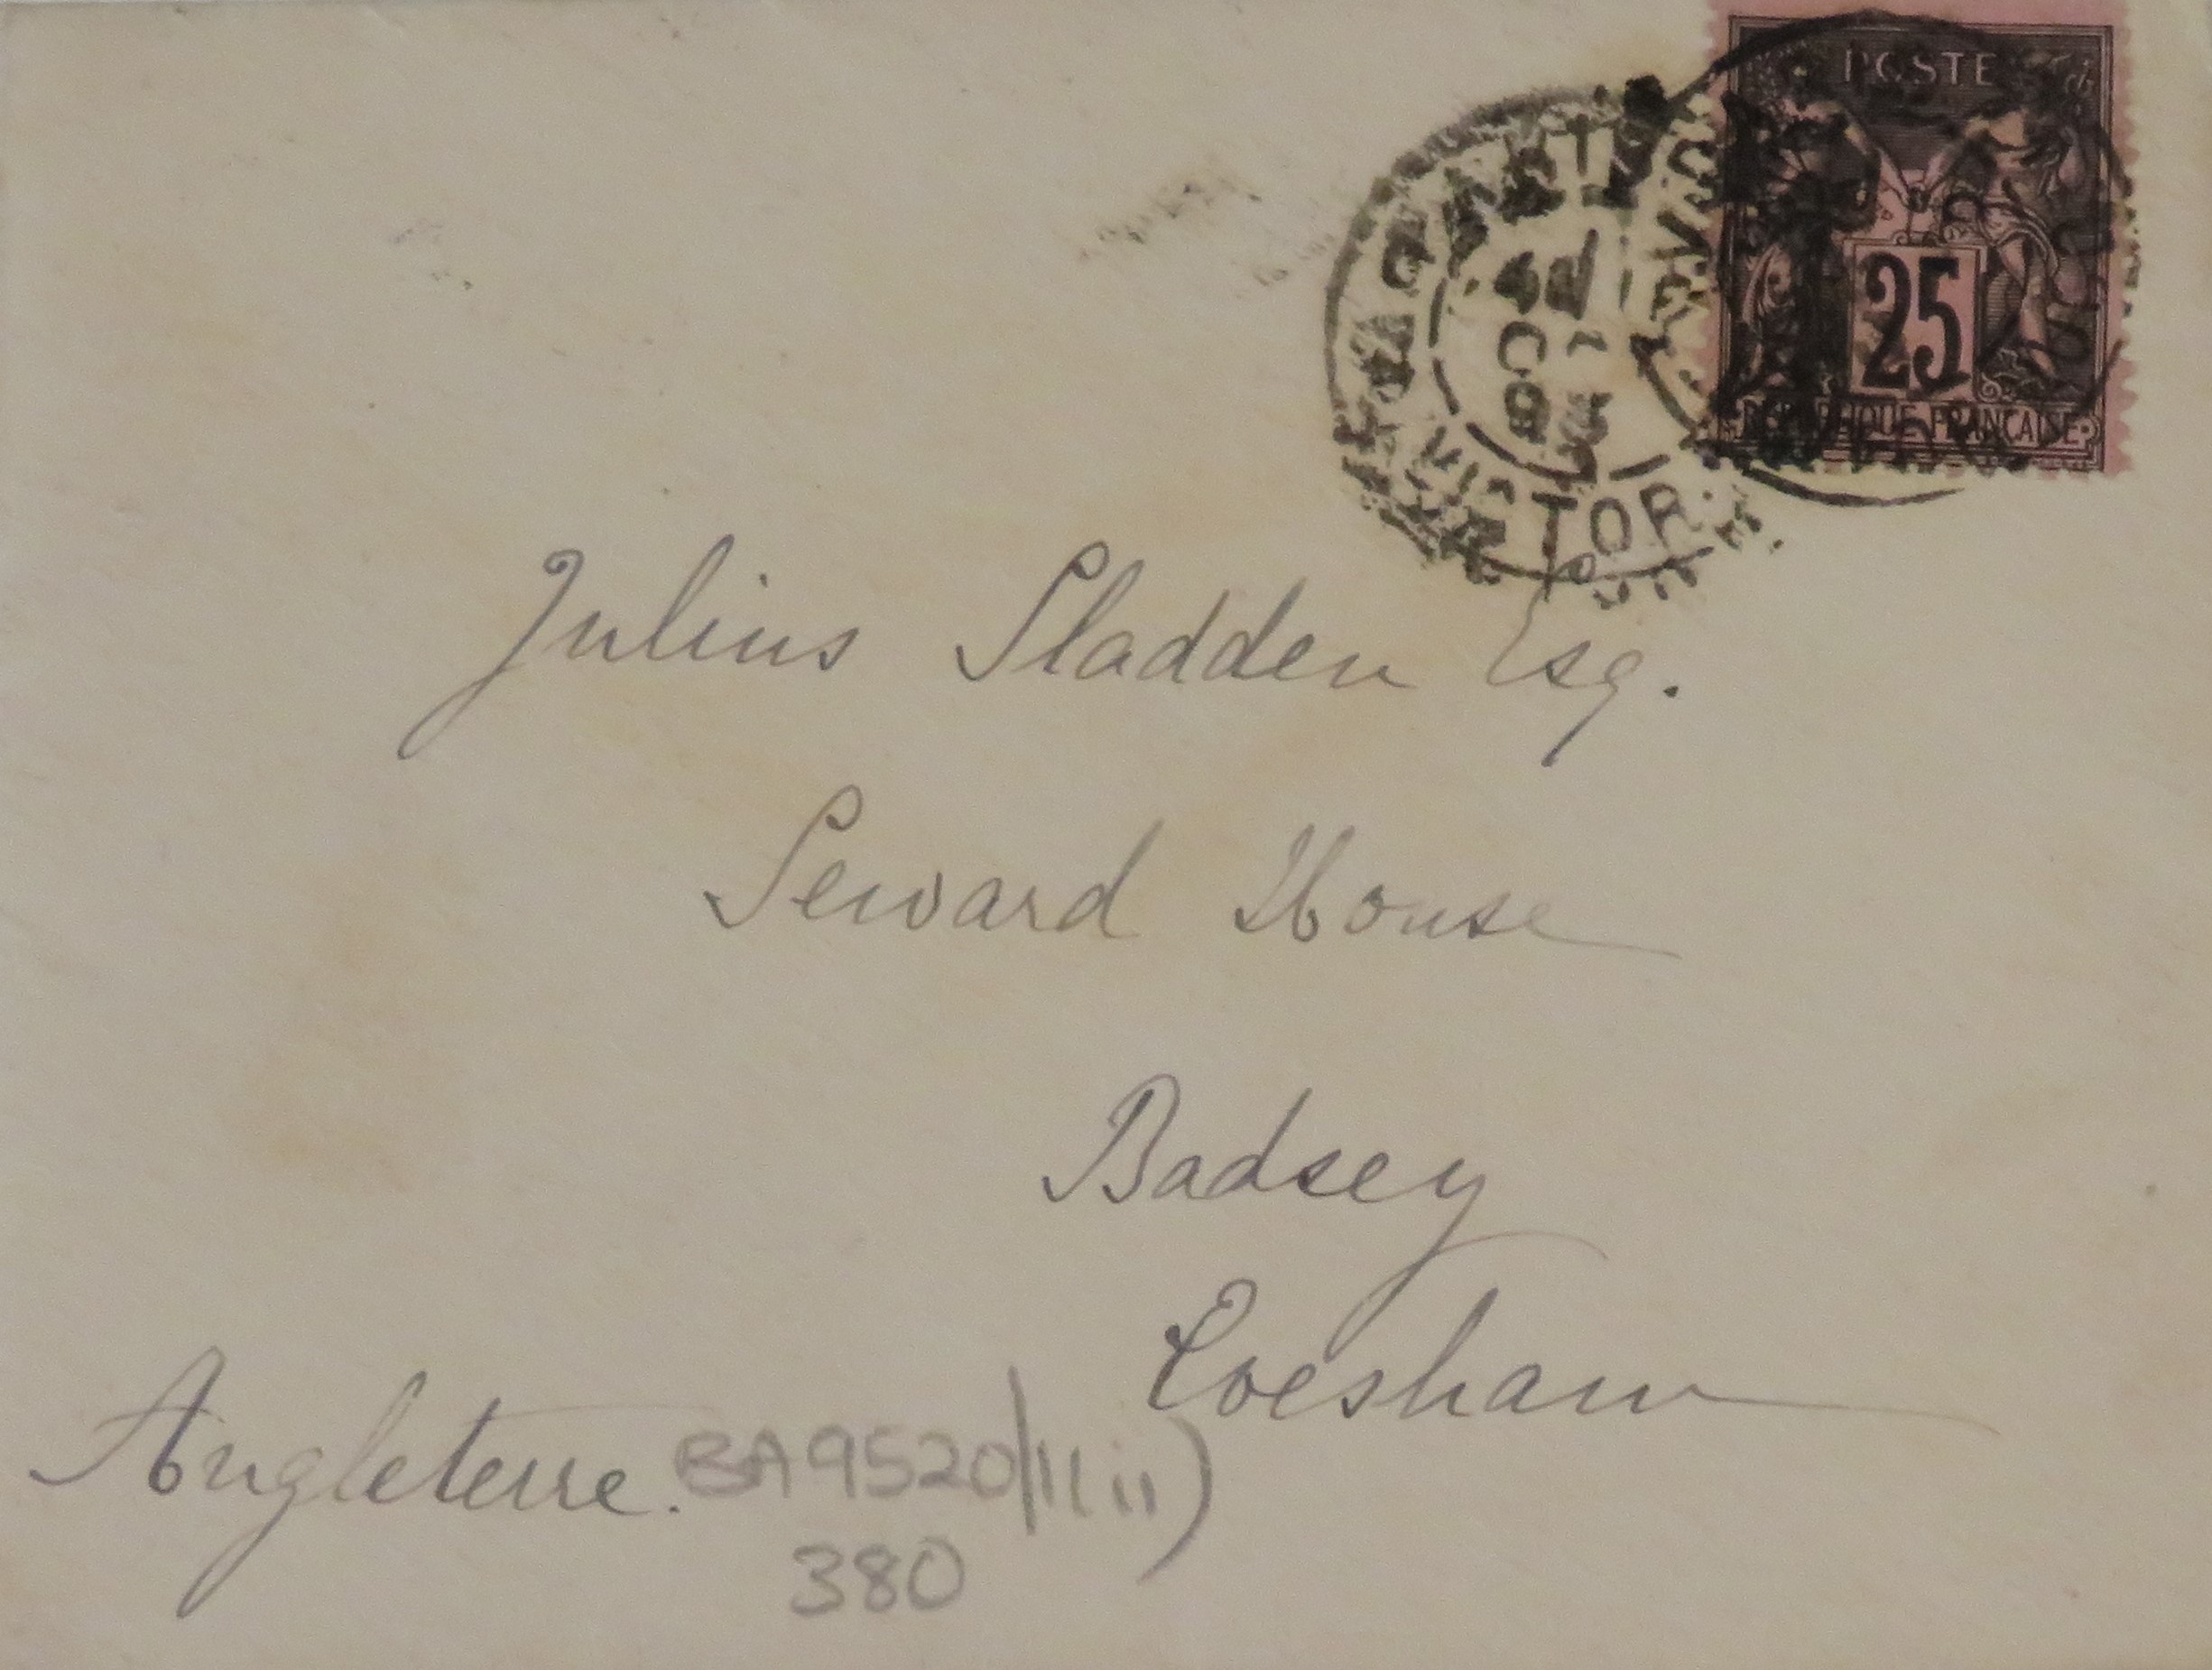 POSTE
25
REPUBLIQUE FRANCAISE
OC
Julius Sladden Esq.
Seward House
Badsey
Evesham
Angleterre. BA9520/11(ii)
380